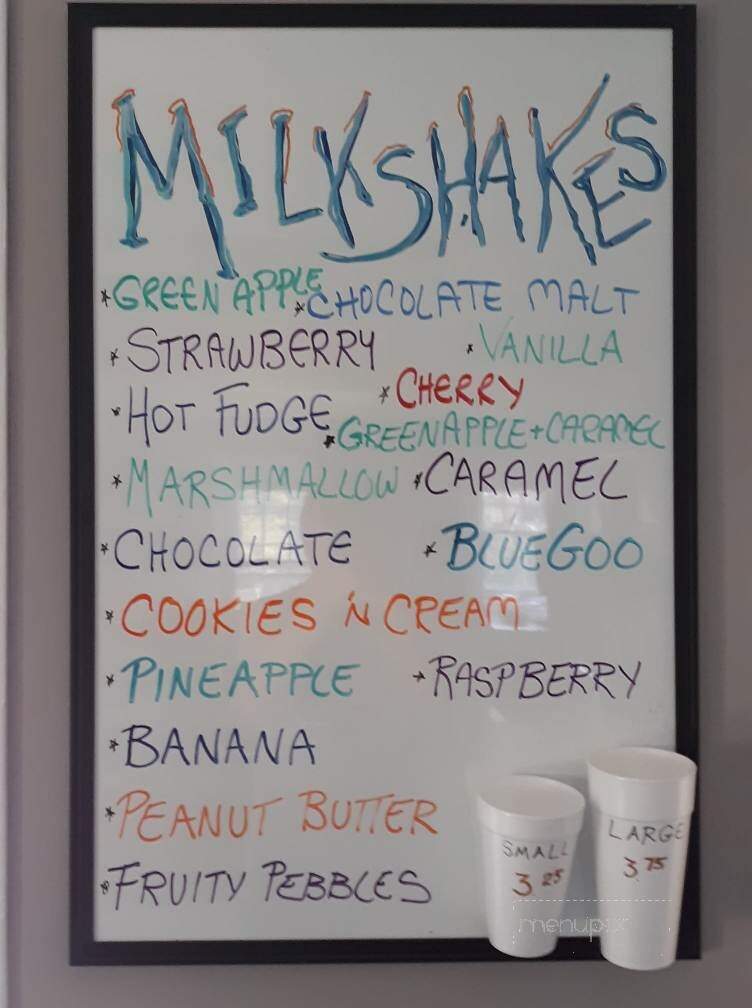 MILKSHAKES
*GREEN APPLE *CHOCOLATE MALT
*STRAWBERRY *VANILLA
*CHERRY
*HOT FUDGE
*GREEN APPLE+CARAMEL
*MARSHMALLOW *CARAMEL
*CHOCOLATE *BLUE GOO
*COOKIES 'N CREAM
*PINEAPPLE *RASPBERRY
*BANANA
*PEANUT BUTTER
*FRUITY PEBBLES
SMALL
3.25
LARGE
3.75
menupix